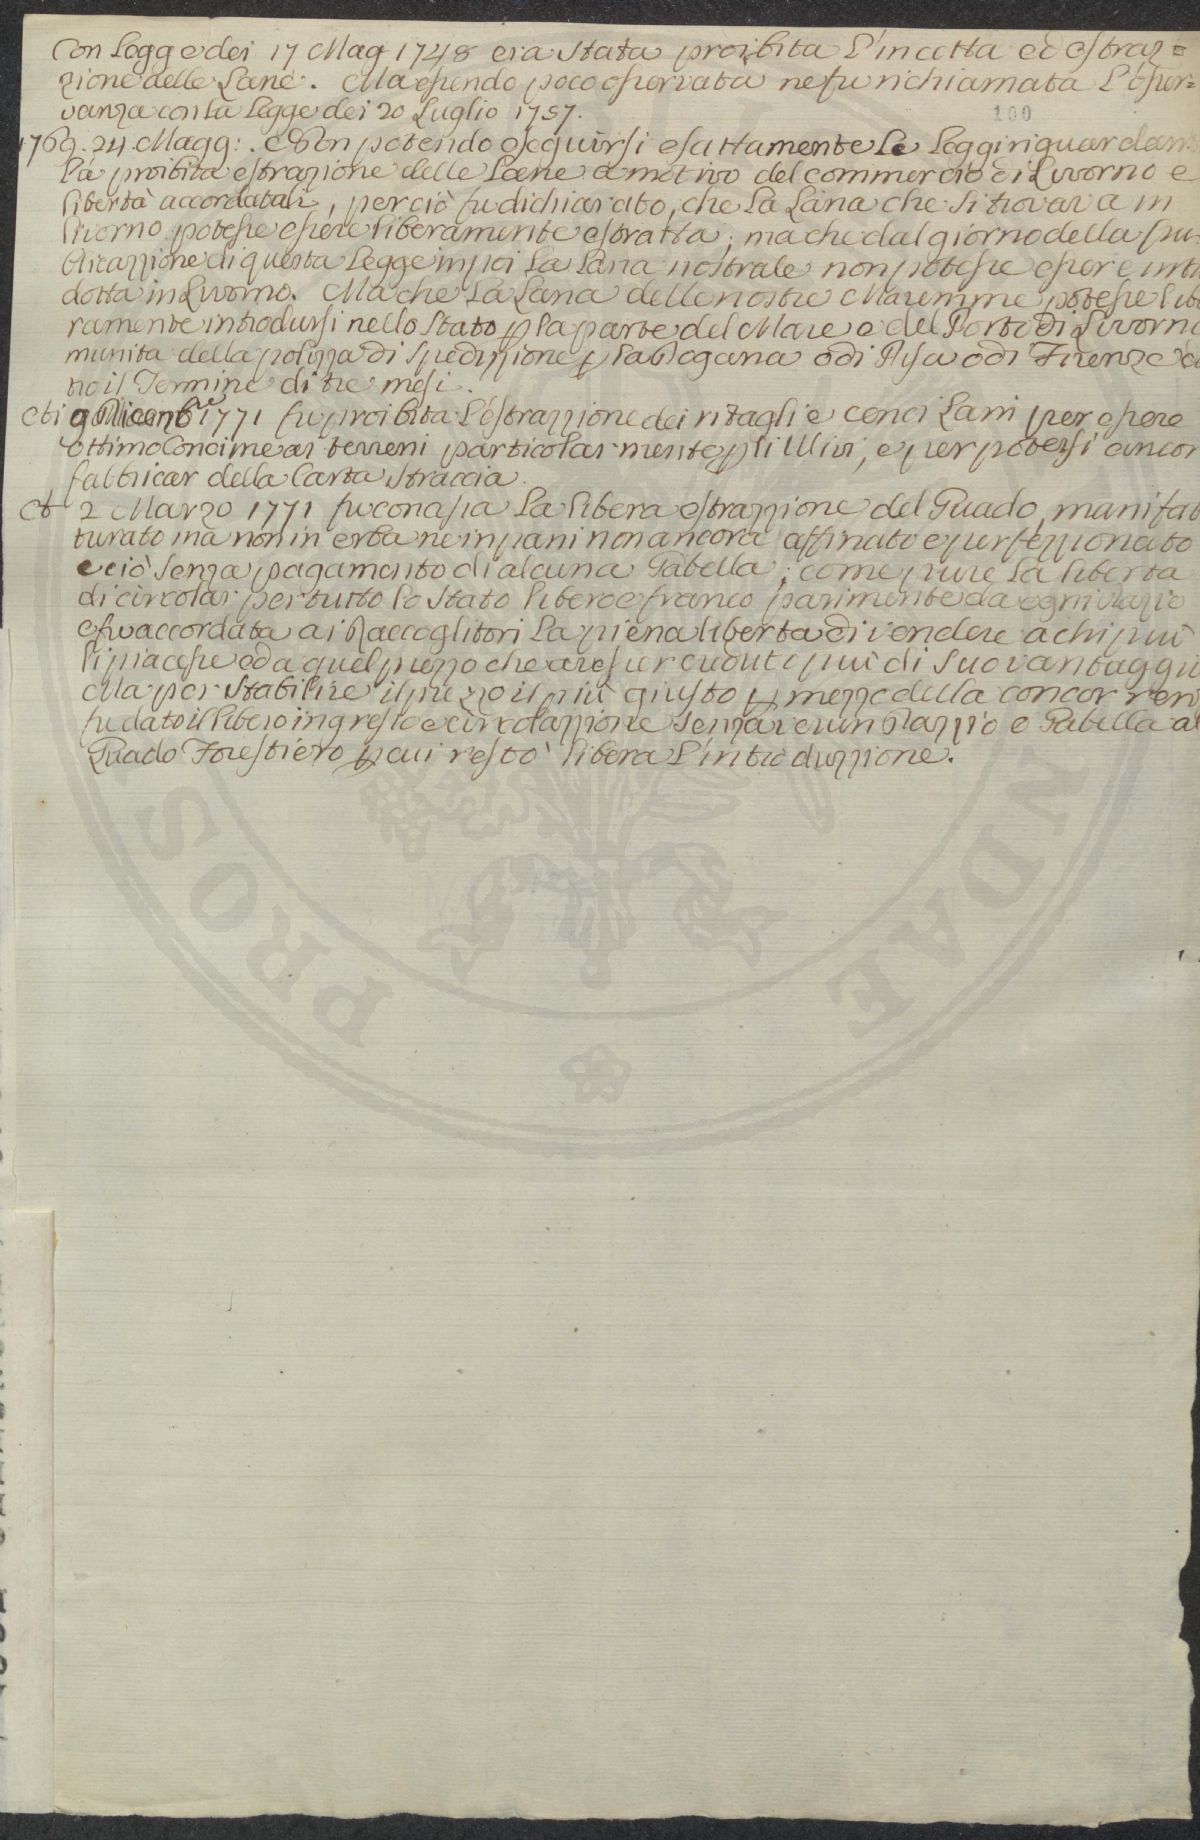 Con Legge dei 17 Mag 1748 era stata proibita l'incetta ed estraz=
zione delle Lane. Ma essendo poco osservata ne fu richiamata l'osser=
vanza con la Legge dei 20 Luglio 1757.
100
1769. 24. Magg:. Non potendo eseguirsi esattamente Le Leggi riguardan
la proibita estrazione delle Lane a motivo del commercio di Livorno e
libertà accordatali, perciò fu dichiarato, che La Lana che si trovava in
livorno potesse essere liberamente estratta; ma che dal giorno della pu-
blicazzione di questa Legge in poi La Lana nostrale non potesse essere intro
dotta in Livorno. Ma che La Lana delle nostre Maremme potesse libe
ramente introdursi nello Stato p la parte del Mare e del Porto di Livorno
munita della polizza di Spedizzione p la Dogana o di Pisa o di Firenze
no il Termine di tre mesi.
9 Dicembre 1771 fu proibita l'estrazzione dei ritagli e cenci Lani per essere
ottimo Concime ai terreni particolarmente p gli Ulivi, e per potersi ancor
fabbricar della Carta Straccia.
2 Marzo 1771 fu concessa La libera estrazzione del Guado, manifat
turato ma non in erba ne in pani non ancora affinato e perfezzionato
e ciò senza pagamento di alcuna Gabella; come pure La libertà
di circolar per tutto lo Stato libero e franco parimente da ogni dazio
e fu accordata ai Raccoglitori La piena libertà di vendere a chi più
li piacesse ed a quel prezzo che avesser creduto più di suo vantaggio
Ma per stabilire il prezzo il più giusto p mezzo della concorren
fu dato il libero ingresso e circolazzione senza verun Dazzio e Gabella al
Guado Forestiero p cui restò libera l'introduzzione.